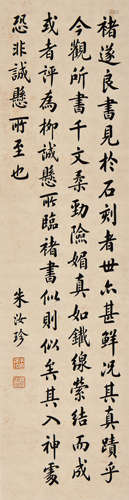 褚遂良書見於石刻者世亦甚鮮况真蹟乎
今觀所書千文柔勁險媚真如鐵線縈結而成
或者評為柳誠懸所臨褚書似則似矣其入神處
恐非誠懸所至也
朱汝珍